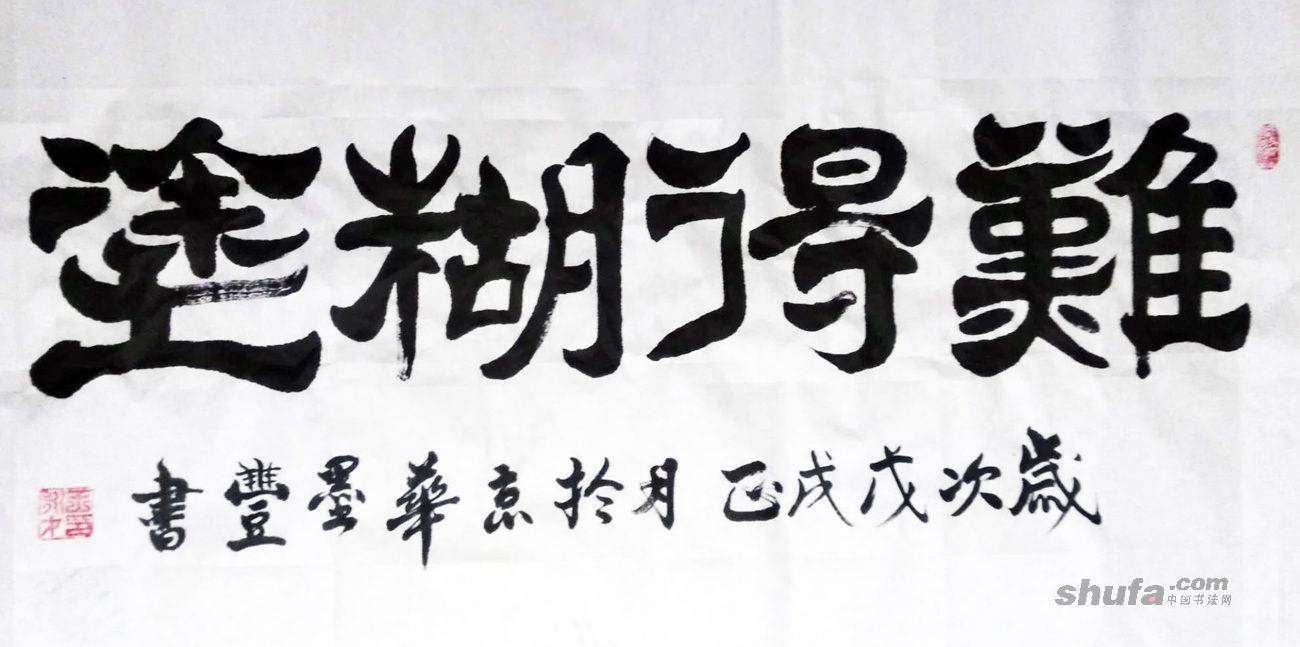 難得糊塗
歲次戊戌正月於京華墨豐書
shufa.com
中国书法网